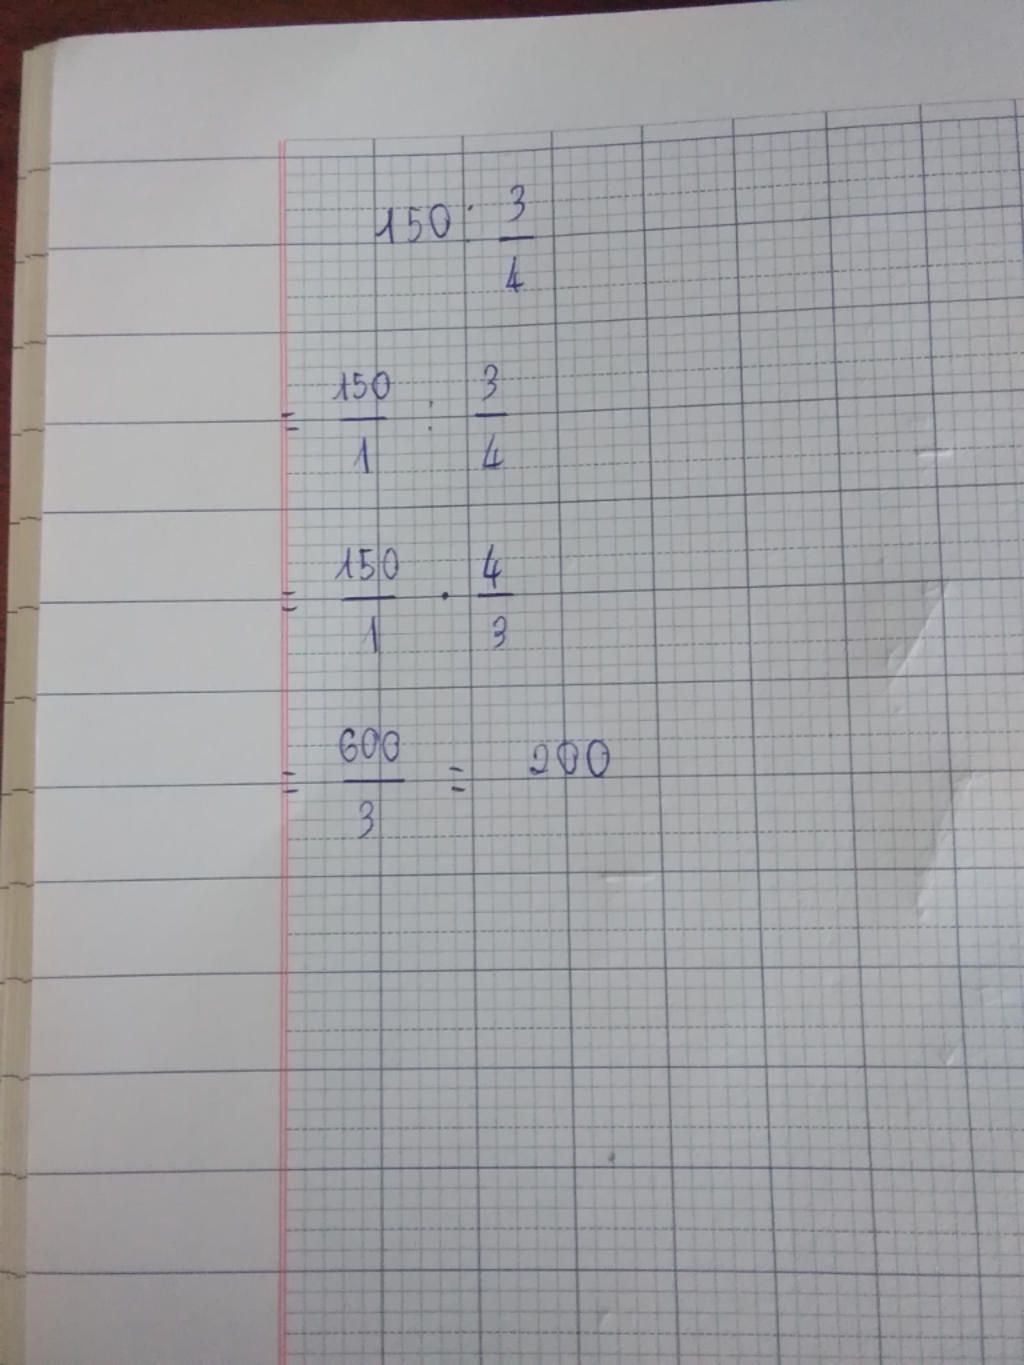 150 : 3/4
= 150/1 : 3/4
= 150/1 · 4/3
= 600/3 = 200